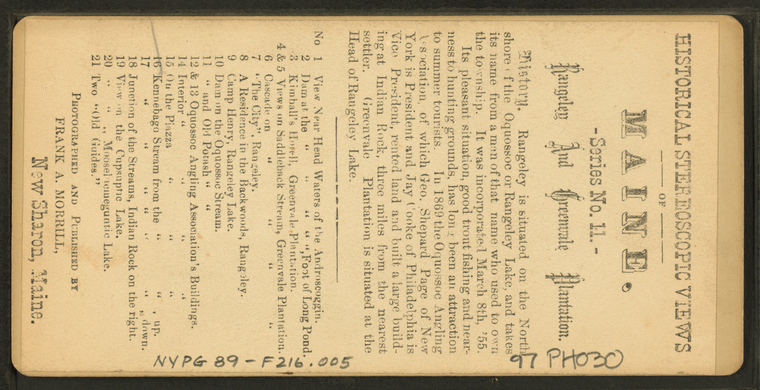 HISTORICAL STEREOSCOPIC VIEWS
OF
MAINE.
- Series No. 11. -
Rangeley And Greenvale Plantation.
History. Rangeley is situated on the North
shore of the Oquossoc or Rangeley Lake, and takes
its name from a man of that name who used to own
the township. It was incorporated March 8th, '55.
Its pleasant situation, good trout fishing and near-
ness to hunting grounds, has long been an attraction
to summer tourists. In 1869 the Oquossoc Angling
Association, of which Geo. Shepard Page of New
York is President and Jay Cooke of Philadelphia is
Vice President, rented land and built a large build-
ing at Indian Rock, three miles from the nearest
settler. Greenvale Plantation is situated at the
Head of Rangeley Lake.
No 1 View Near Head Waters of the Androscoggin.
2 Dam at the " " " " " , Foot of Long Pond.
3 Kimball's Hotell, Greenvale Plantation.
4 & 5 Views on Saddleback Stream, Greenvale Plantation
6 Cascade on " " " "
7 "The City", Rangeley.
8 A Residence in the Backwoods, Rangeley.
9 Camp Henry, Rangeley Lake.
10 Dam on the Oquossoc Stream.
11 " and Old Potash " "
12 & 13 Oquossoc Angling Association's Buildings.
14 Interior " " "
15 On the Piazza " " "
16 Kennebago Stream from the " " , up.
17 " " " " " " , down.
18 Junction of the Streams, Indian Rock on the right.
19 View on the Cupsuptic Lake.
20 " " " Mooselemeguntic Lake.
21 Two "Old Guides."
PHOTOGRAPHED AND PUBLISHED BY
FRANK A. MORRILL,
New Sharon, Maine.
NYPG 89-F216.005
97 PH030